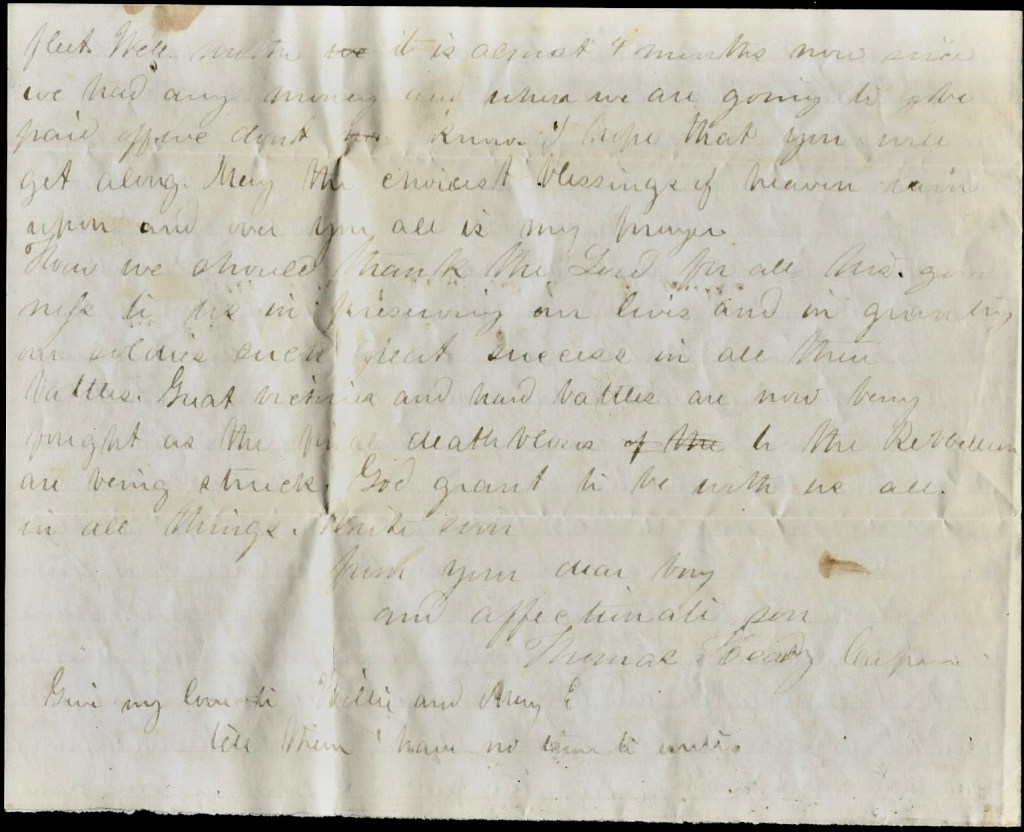 fleet Well mother ~~we~~ it is almost 4 months now since
we had any money and when we are going to be
paid off we dont know. I hope that you will
get along. May the choicest blessings of heaven rain
upon and over you all is my prayer
How we should thank the Lord for all his good
ness to us in preserving our lives and in granting
our soldies such great success in all their
battles. Great victories and hard battles are now being
fought as the final death blows ~~of the~~ to the Rebbellion
are being struck. God grant to be with us all
in all things. Write soon
from your dear boy
and affectionate son
Thomas
Give my love to Willie and Mary E
tell them I have no time to write.